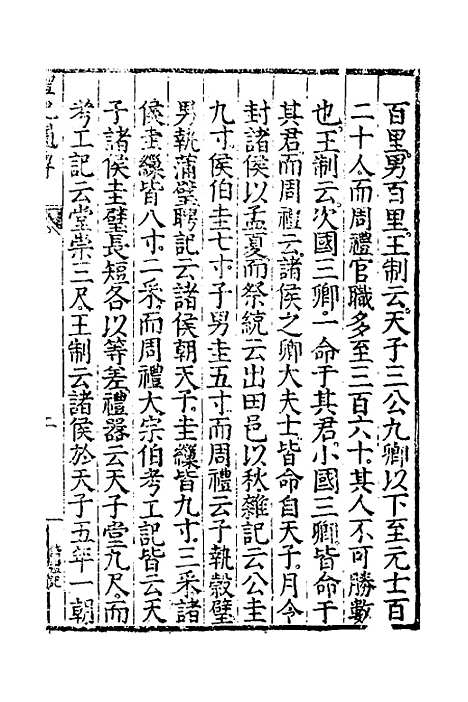 百里。男百里。王制云。天子三公九卿以下至元士百
二十人。而周禮官職多至三百六十。其人不可勝數
也。王制云。次國三卿。一命于其君。小國三卿。皆命于
其君。而周禮云。諸侯之卿大夫士。皆命自天子。月令
封諸侯以孟夏。而祭統云出田邑以秋。雜記云公圭
九寸。侯伯圭七寸。子男圭五寸。而周禮云子執穀璧
男執蒲璧。聘記云諸侯朝天子。圭繅皆九寸。三采。諸
侯圭繅皆八寸。二采。而周禮大宗伯考工記皆云天
子諸侯圭璧長短各以等差。禮器云天子堂九尺。而
考工記云堂崇三尺。王制云諸侯於天子五年一朝